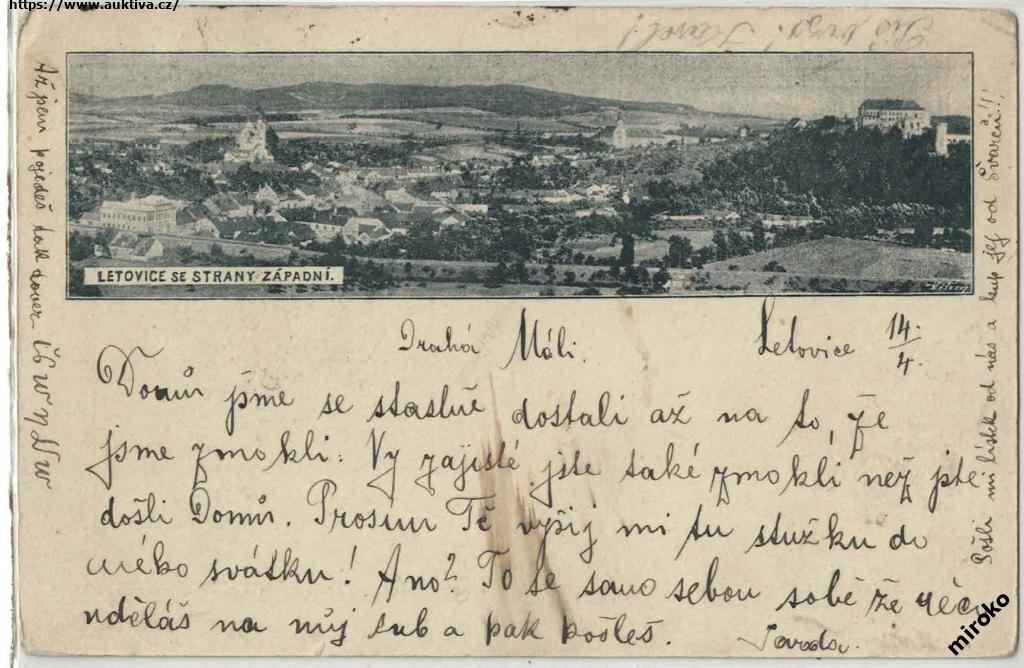 https://www.auktiva.cz/
Piš brzo! Karel!
LETOVICE SE STRANY ZÁPADNÍ.
Drahá Máli.
Letovice 14./4.
Domů jsme se stastně dostali až na to, že
jsme zmokli. Vy zajisté jste také zmokli než jste
došli Domů. Prosím Tě vyšij mi tu stužku do
mého svátku! Ano? To se samo sebou sobě že něco
uděláš na můj lub a pak pošleš.
Až jem pojedeš tak
Pošli mi lístek od nás a kup jej od Švařeň!!,
miroko